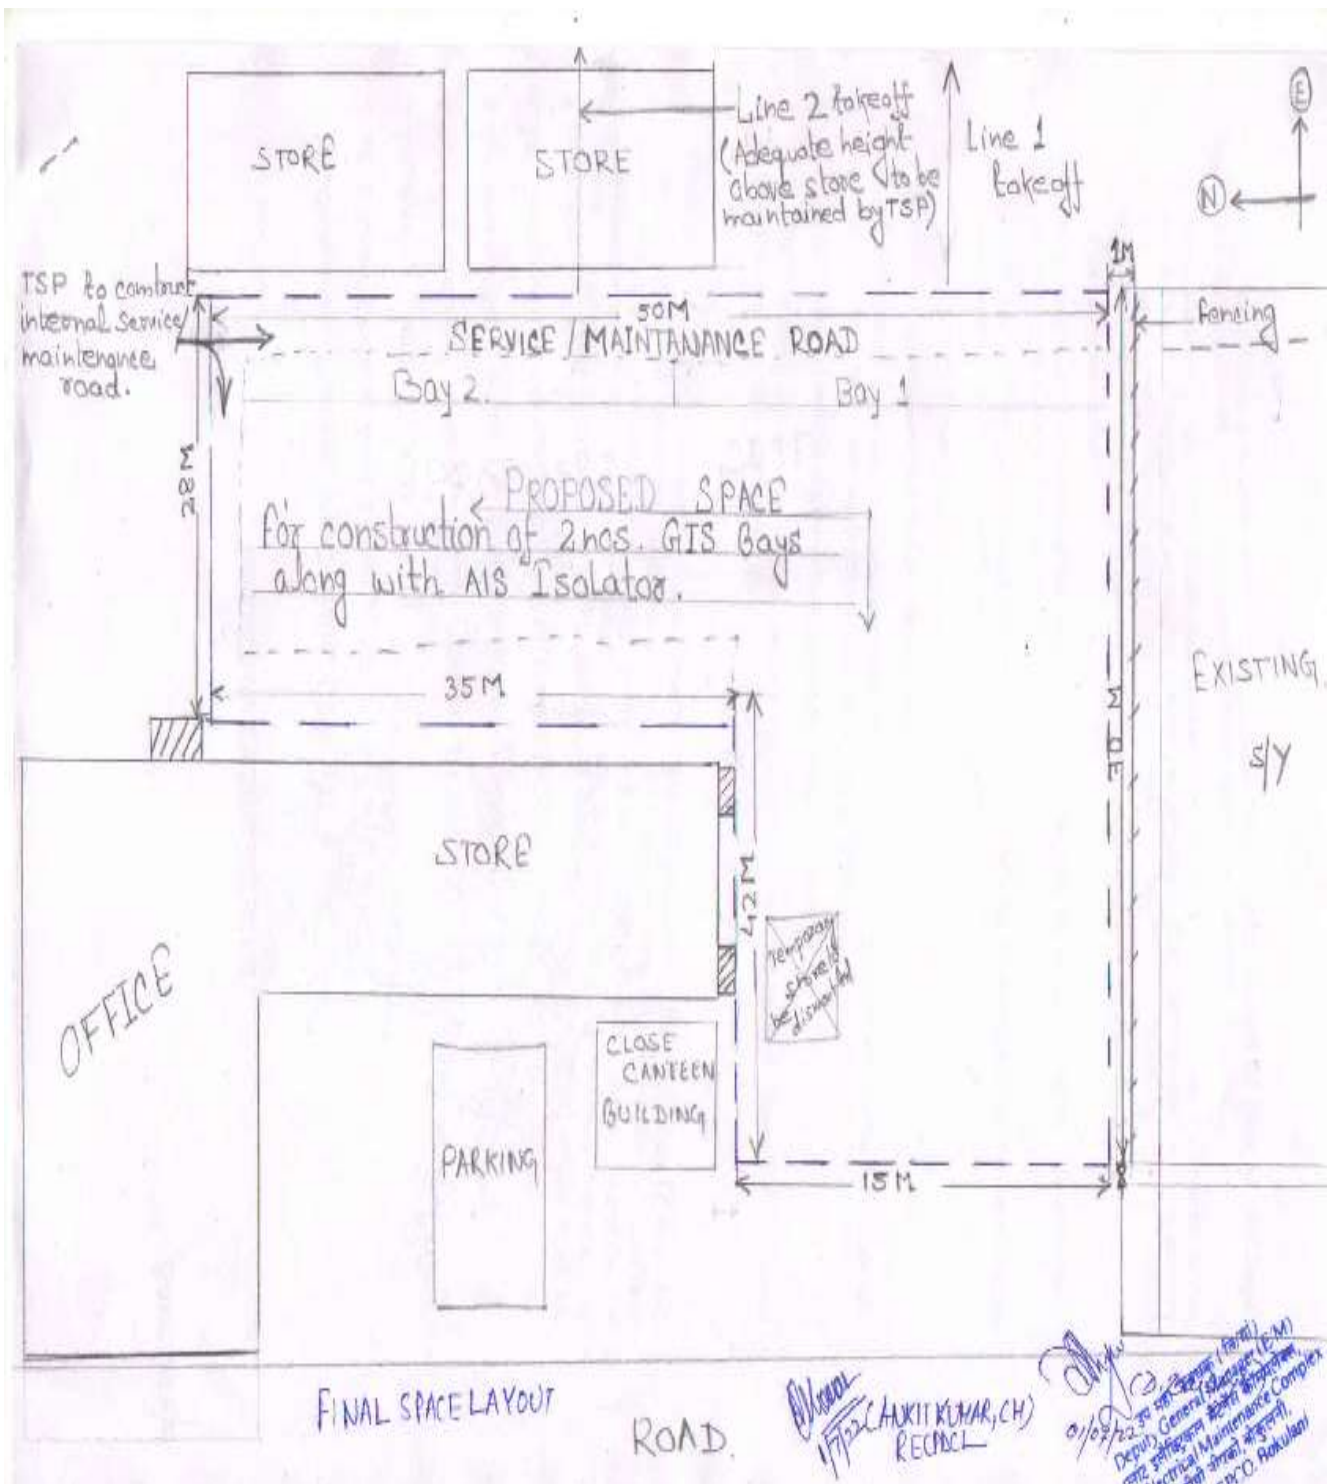 STORE
STORE
Line 2 takeoff
(Adequate height
above store to be
maintained by TSP)
Line 1
takeoff
E
N
1M
TSP to construct
internal service/
maintenance
road.
50M
fencing
SERVICE/MAINTANANCE ROAD
Bay 2.
Bay 1
28M
PROPOSED SPACE
for construction of 2nos. GIS Bays
along with AIS Isolator.
35M
EXISTING
S/Y
STORE
42M
OFFICE
CLOSE
CANTEEN
BUILDING
PARKING
15M
FINAL SPACE LAYOUT
ROAD.
1/7/22 (ANKIT KUMAR, CM)
RECPDCL
01/07/22
Deputy General Manager (E.M)
Maintenance Complex